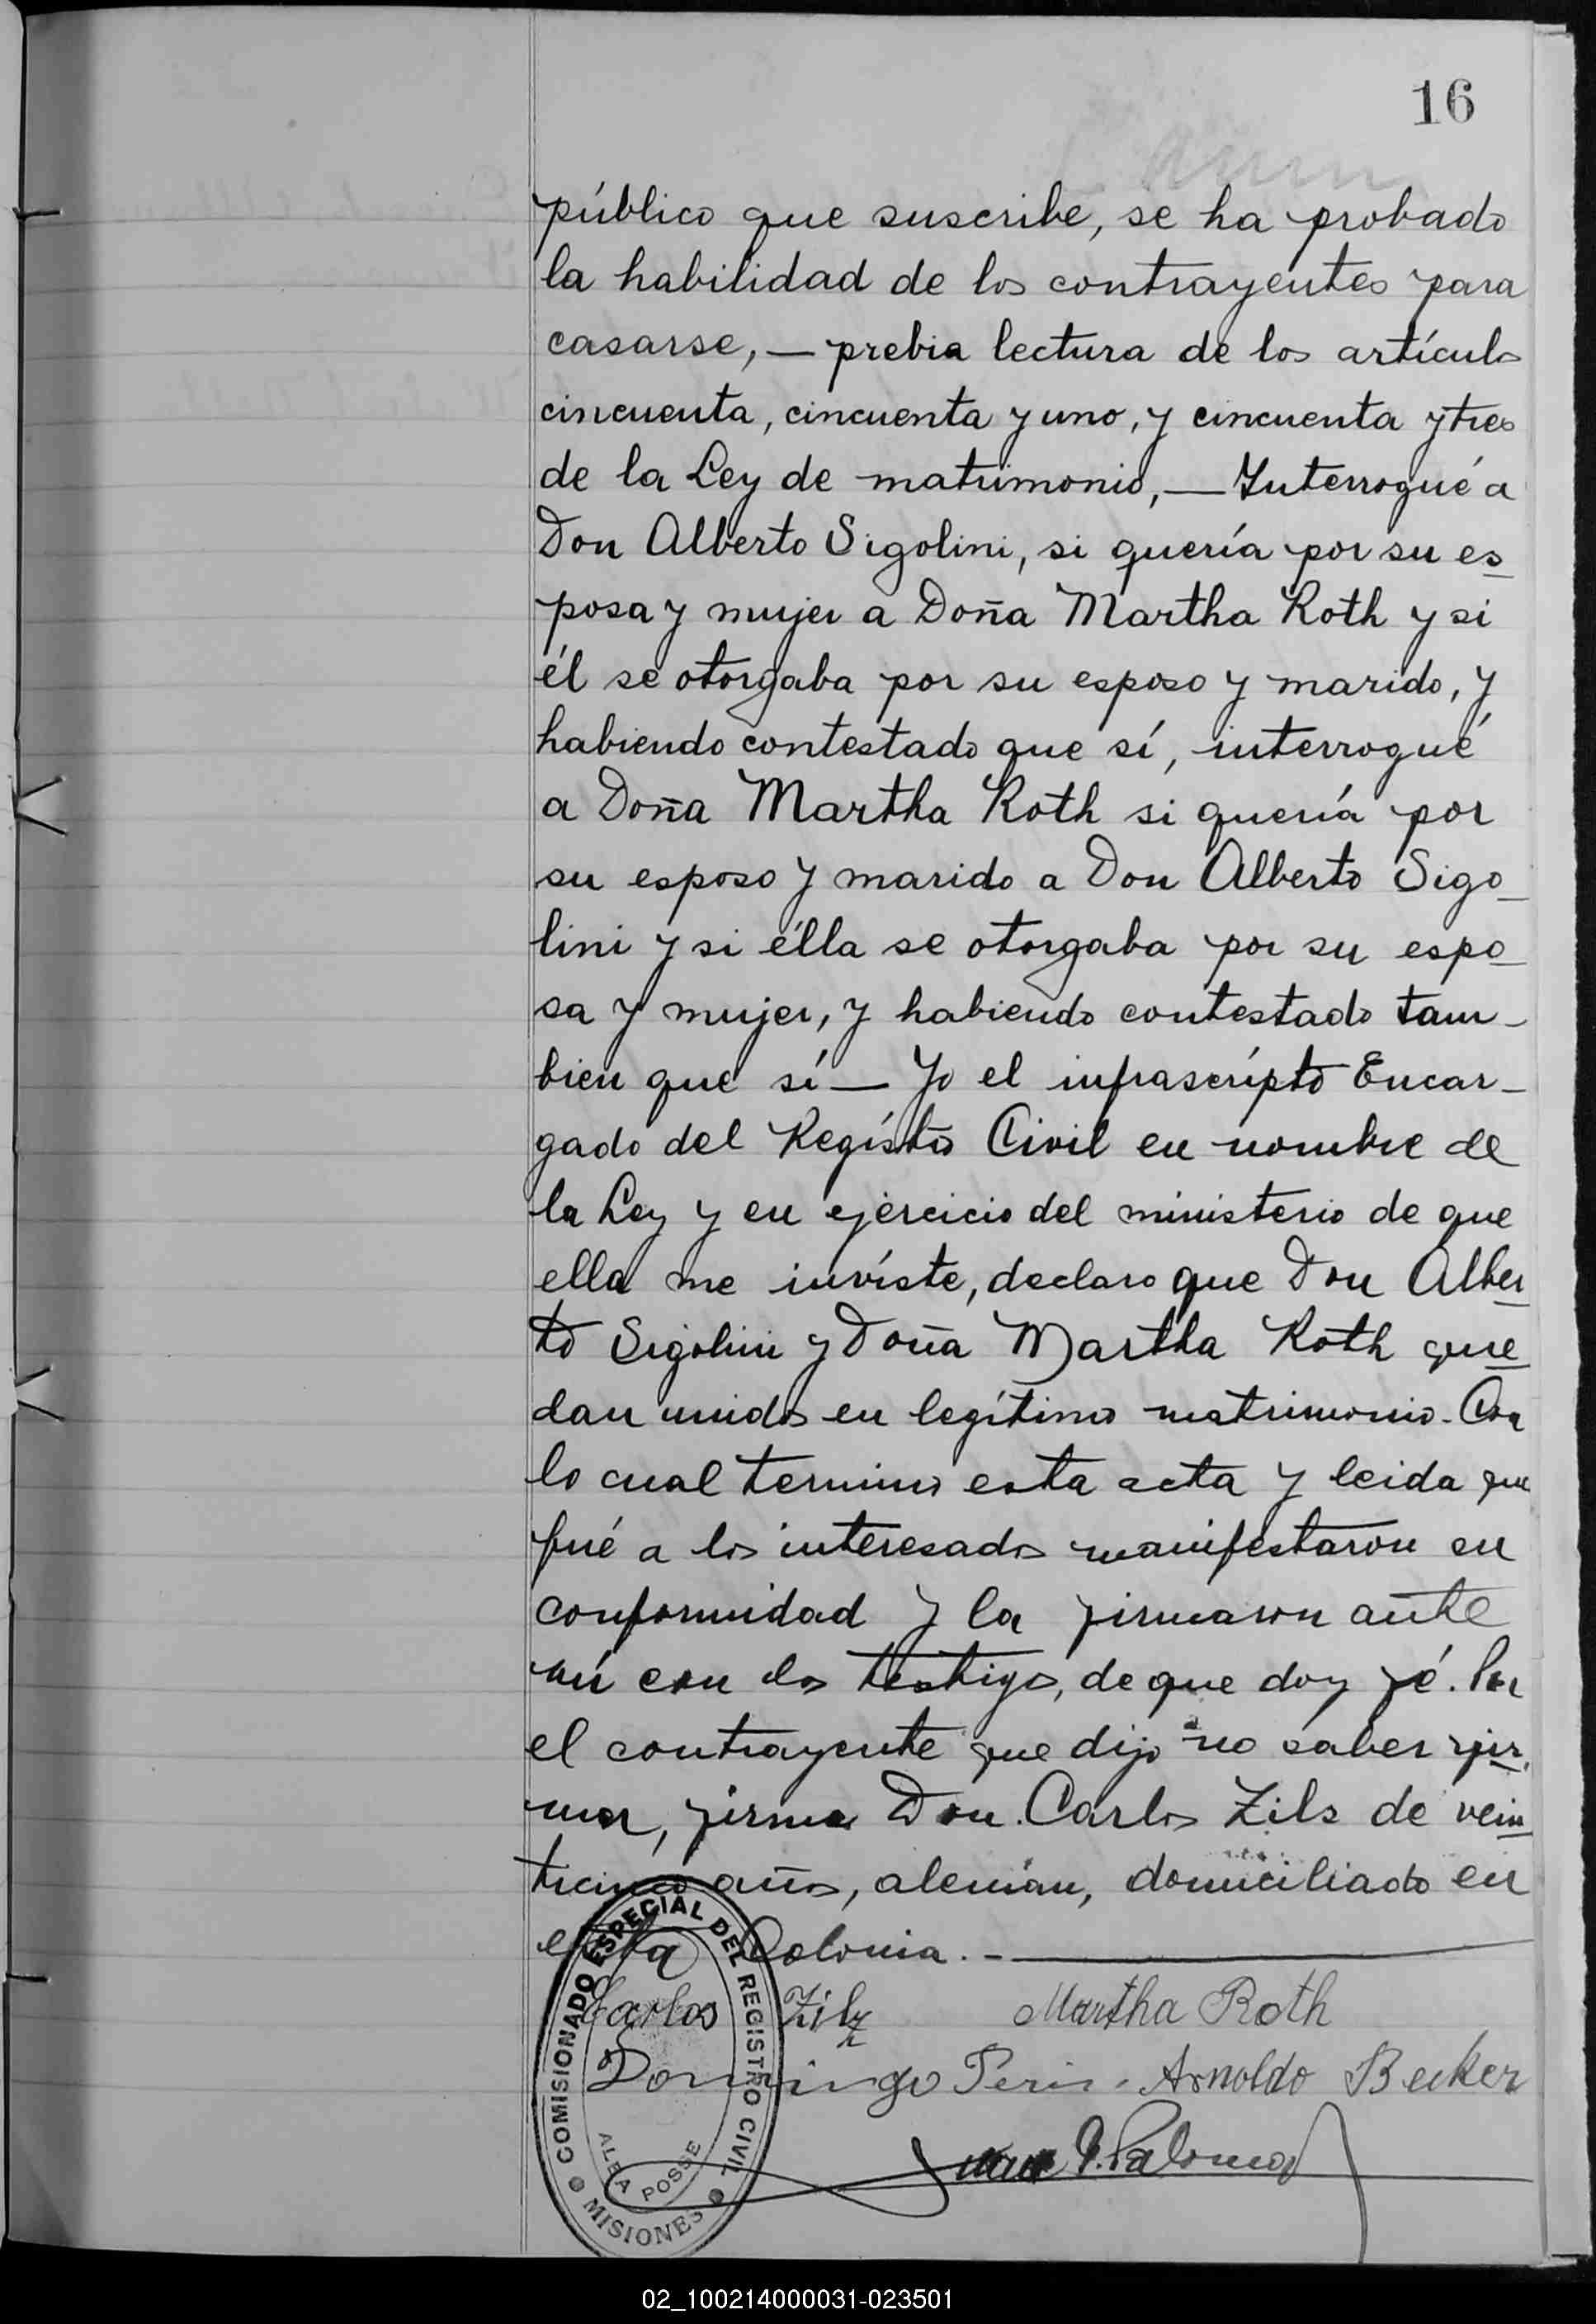 16
público que suscribe, se ha probado
la habilidad de los contrayentes para
casarse, — prebia lectura de los artículos
cincuenta, cincuenta y uno, y cincuenta y tres
de la Ley de matrimonio, — Interrogué a
Don Alberto Sigolini, si quería por su es-
posa y mujer a Doña Martha Roth y si
él se otorgaba por su esposo y marido, y
habiendo contestado que sí, interrogué
a Doña Martha Roth si quería por
su esposo y marido a Don Alberto Sigo-
lini y si élla se otorgaba por su espo-
sa y mujer, y habiendo contestado tam-
bien que sí — Yo el infrascripto Encar-
gado del Registro Civil en nombre de
la Ley y en ejercicio del ministerio de que
ella me invíste, declaro que Don Alber-
to Sigolini y Doña Martha Roth que-
dan unidos en legítimo matrimonio. Con
lo cual termino esta acta y leida que
fué a los interesados manifestaron su
conformidad y la firmaron ante
mí con los testigos, de que doy fé. Por
el contrayente que dijo no saber fir-
mar, firma Don Carlos Zils de vein-
ticinco años, alemán, domiciliado en
esta Colonia. —
Carlos Zilz Martha Roth
Domingo Arnoldo Becker
Juan P. Palomar
COMISIONADO ESPECIAL DEL REGISTRO CIVIL
ALBA POSSE
MISIONES
02_100214000031-023501